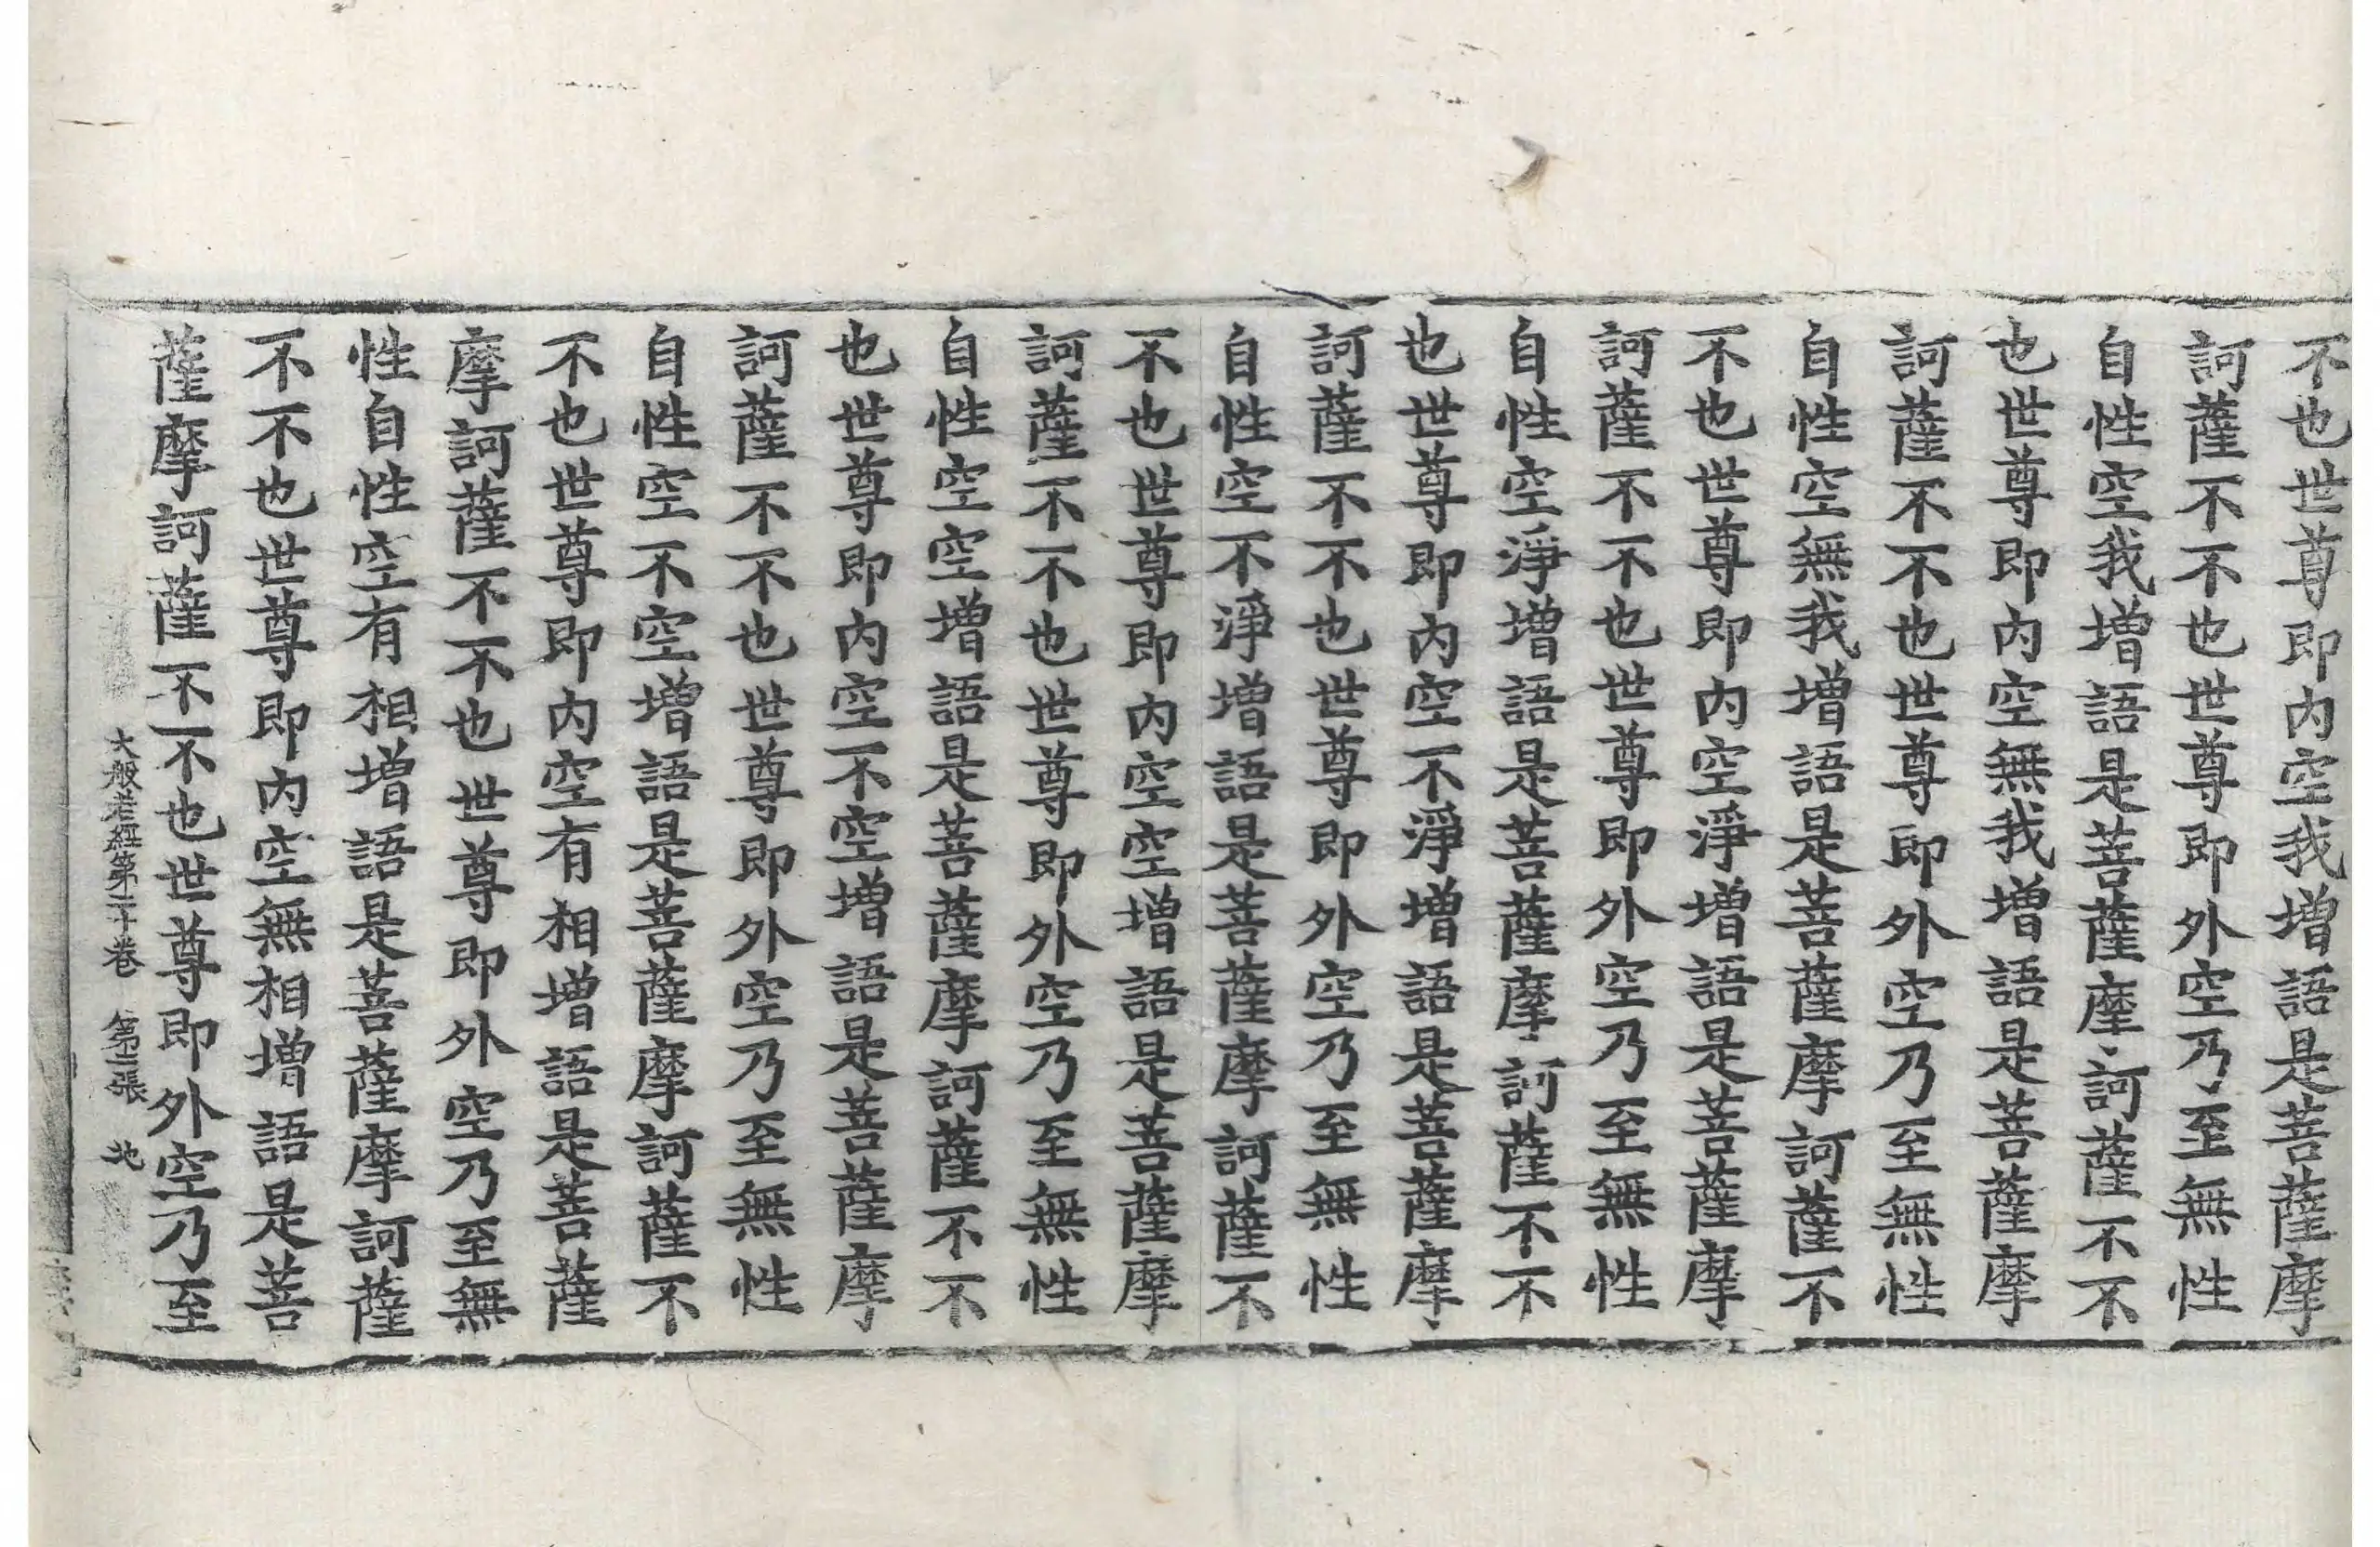 不也世尊即内空我增語是菩薩摩
訶薩不不也世尊即外空乃至無性
自性空我增語是菩薩摩訶薩不不
也世尊即内空無我增語是菩薩摩
訶薩不不也世尊即外空乃至無性
自性空無我增語是菩薩摩訶薩不
不也世尊即内空淨增語是菩薩摩
訶薩不不也世尊即外空乃至無性
自性空淨增語是菩薩摩訶薩不不
也世尊即内空不淨增語是菩薩摩
訶薩不不也世尊即外空乃至無性
自性空不淨增語是菩薩摩訶薩不
不也世尊即内空空增語是菩薩摩
訶薩不不也世尊即外空乃至無性
自性空空增語是菩薩摩訶薩不不
也世尊即内空不空增語是菩薩摩
訶薩不不也世尊即外空乃至無性
自性空不空增語是菩薩摩訶薩不
不也世尊即内空有相增語是菩薩
摩訶薩不不也世尊即外空乃至無
性自性空有相增語是菩薩摩訶薩
不不也世尊即内空無相增語是菩
薩摩訶薩不不也世尊即外空乃至
大般若經第二十卷 第二張 地